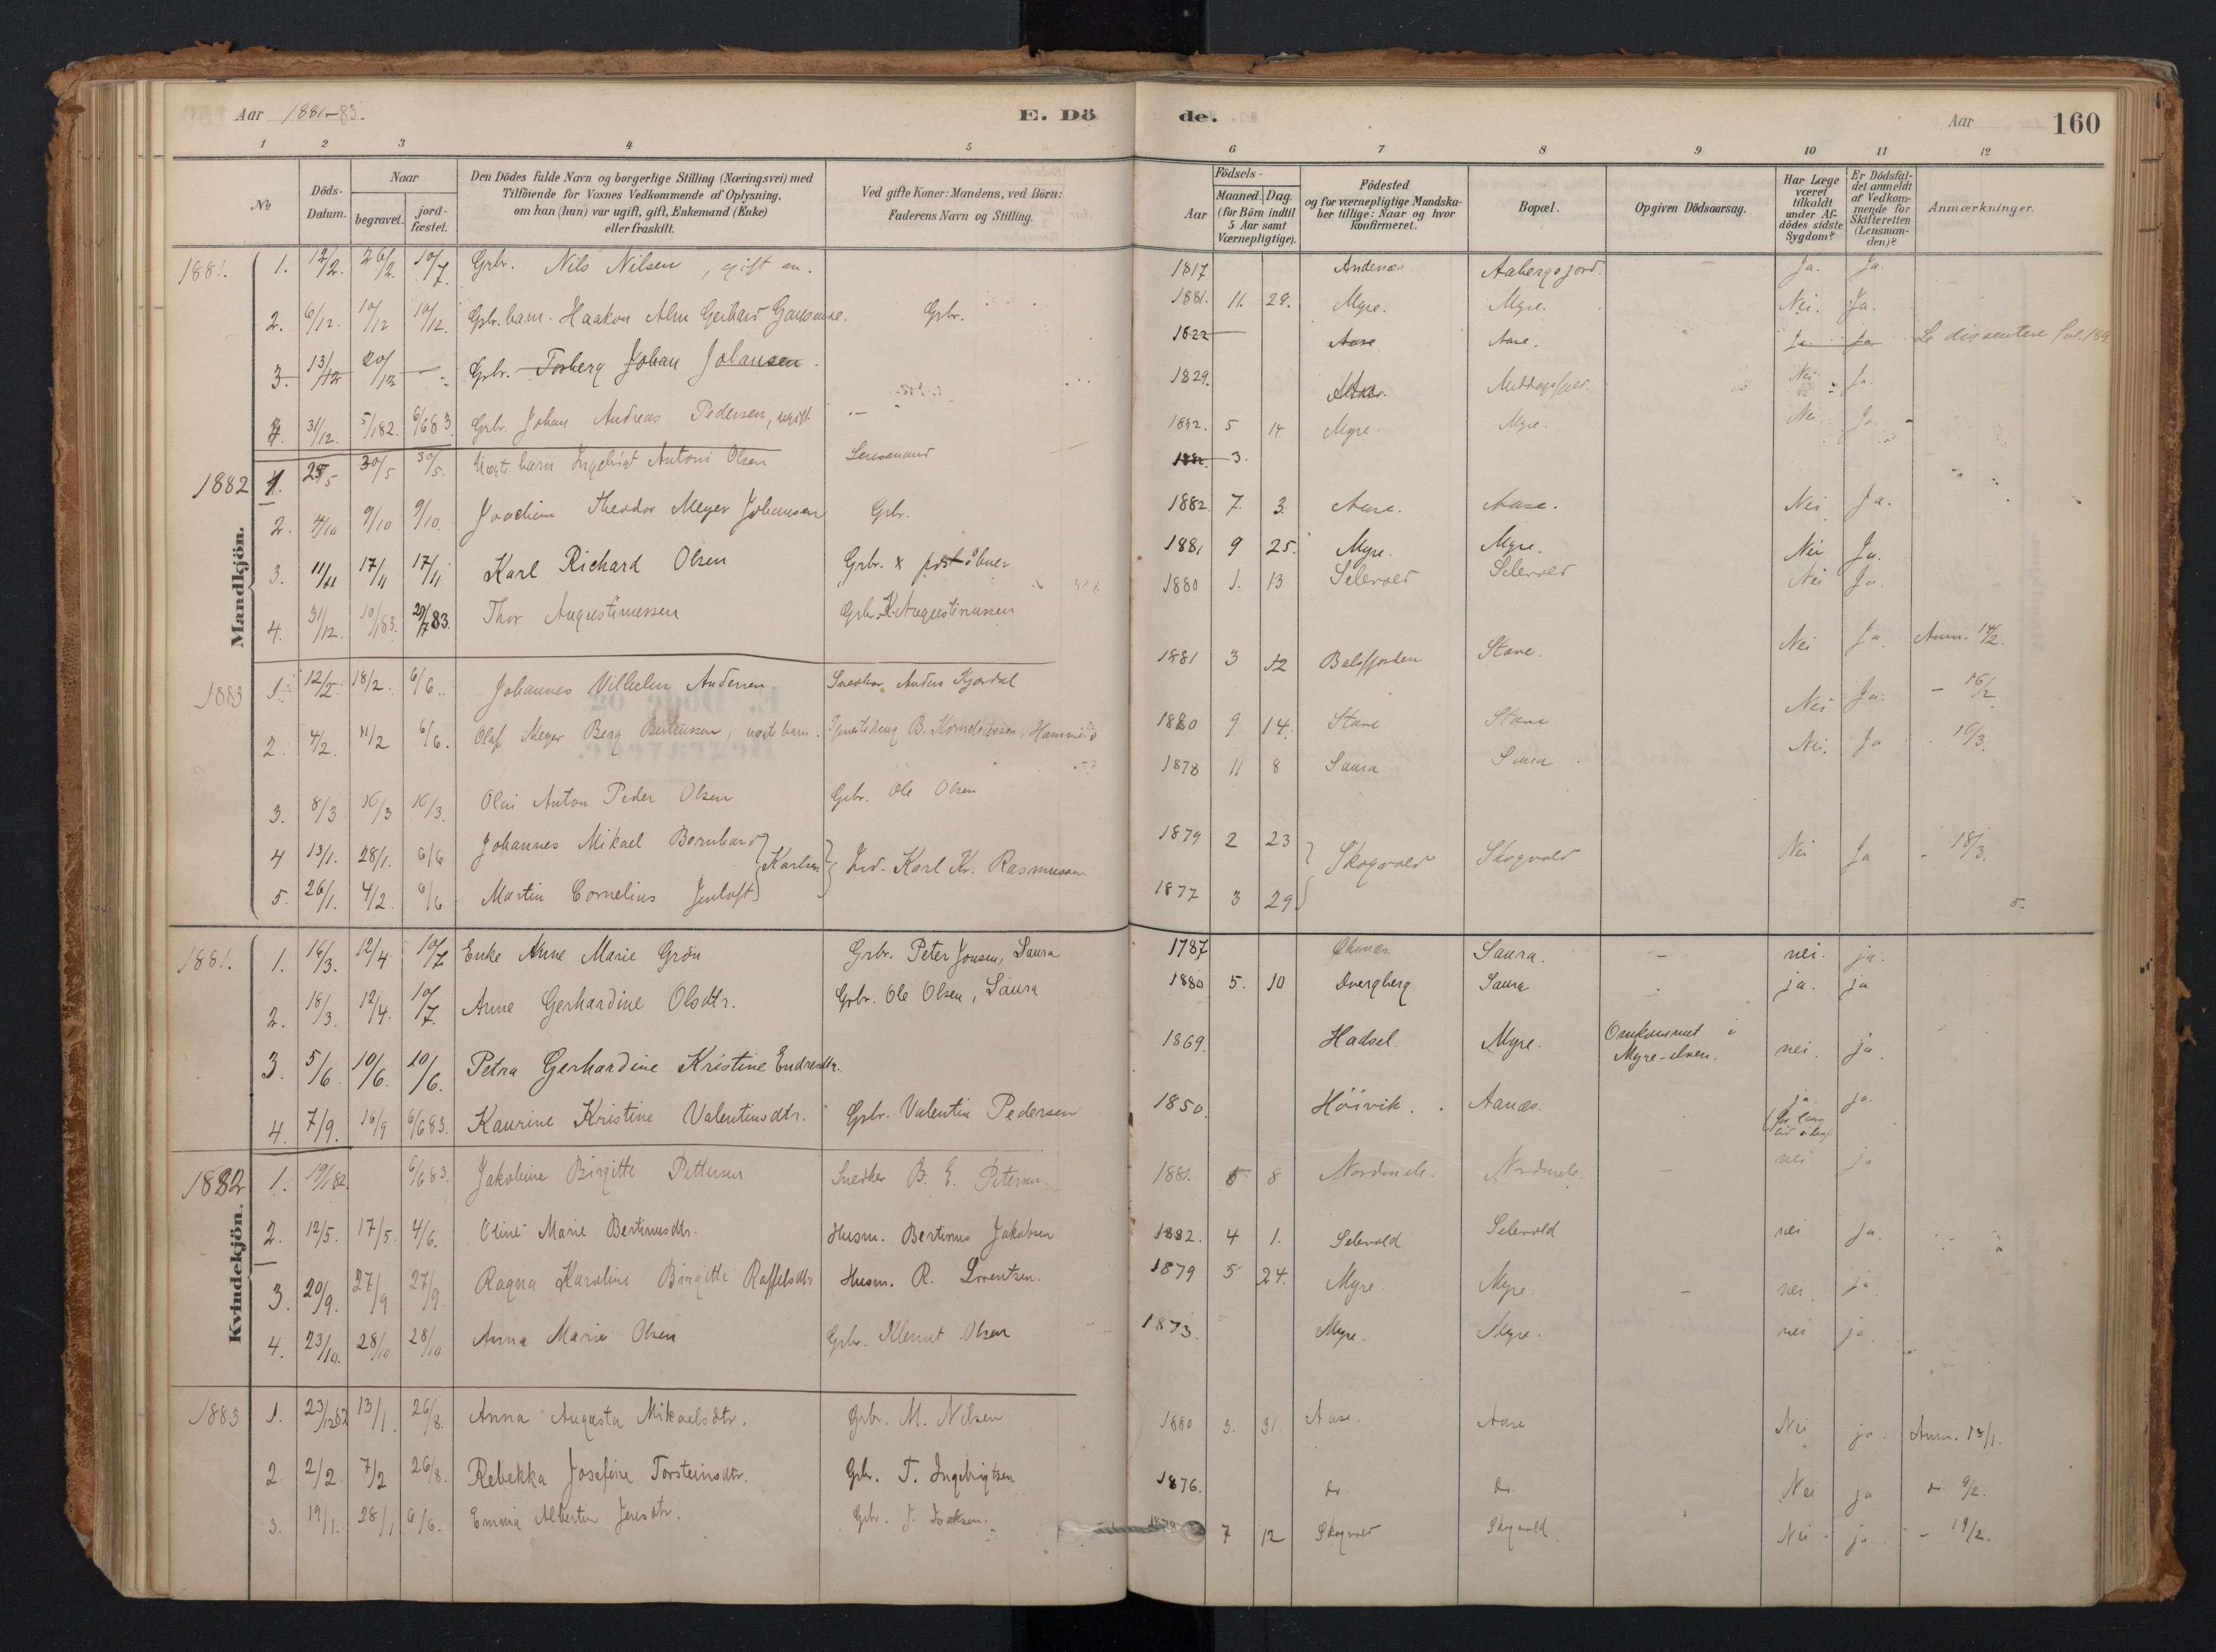 Aar 1881-83. E. Dö
1 2 3 4 5
№
Döds-Datum.
Naar
begravet. jord-fæstet.
Den Dödes fulde Navn og borgerlige Stilling (Næringsvei) med
Tilföiende for Voxnes Vedkommende af Oplysning,
om han (hun) var ugift, gift, Enkemand (Enke)
eller fraskilt.
Ved gifte Koner: Mandens, ved Börn:
Faderens Navn og Stilling.
de. Aar 160
6 7 8 9 10 11 12
Födsels-
Aar Maaned. Dag.
(for Börn indtil
5 Aar samt
Værnepligtige).
Födested
og for værnepligtige Mandska-
ber tillige: Naar og hvor
konfirmeret.
Bopæl.
Opgiven Dödsaarsag.
Har Læge
været
tilkaldt
under Af-
dödes sidste
Sygdom?
Er Dödsfal-
det anmeldt
af Vedkom-
mende for
Skifteretten
(Lensman-
den)?
Anmærkninger.
Mandkjön.
1881. 1. 12/2. 26/2. 10/7. Grbr. Nils Nilsen, gift en. 1817 Andenæs Ja. Ja.
2. 6/12. 10/12 10/12. Grbr. barn. Haakon Alm Gerhard Grbr. 1881. 11. 29. Myre. Myre. Nei. Ja.
3. 13/12 20/12 Grbr. Torberg Johan Johansen. 1822 Aase Aase. Ja Ja
4. 31/12. 5/1 82. 6/6 83. Grbr. Johan Andreas Pedersen, ugift 1829. Nei Ja.
1882 1. 25/5 30/5 30/5. Uægt barn Ingebrigt Antoni Olsen 1882. 5 14 Myre. Myre. Nei Ja
2. 4/10 9/10 9/10. Joachim Theodor Meyer Johansen Grbr. 1882 7. 3. Aase. Aase. Nei Ja.
3. 11/11 17/11 17/11 Karl Richard Olsen Grbr. & poståbner 1881 9 25. Myre. Myre. Nei Ja.
4. 31/12. 10/1 83. 29/7 83. Thor Augustinussen Grbr. K. Augustinussen 1880 1. 13 Selevold Selevold Nei Ja
1883 1. 12/2 18/2. 6/6. Johannes Vilhelm Andersen Snedker Anders Kjordal 1881 3 12 Balsfjorden Stave. Nei Ja Anm. 14/2.
2. 4/2. 11/2 6/6. Olaf Meyer Berg Berntussen, uægt barn. B. Kornelissen, 1880 9 14. Stave Stave Nei Ja. - 16/2
3. 8/3 16/3 16/3. Olai Anton Peder Olsen Grbr. Ole Olsen 1878 11 8 Saura Saura Nei. Ja 10/3.
4 13/1. 28/1. 6/6 Johannes Mikael Bernhard } Karlsen } Ind. Karl Kr. Rasmussen 1879 2 23 } Skogvold Skogvold Nei Ja - 18/3.
5. 26/1. 4/2. 6/6 Martin Cornelius Jentoft 1877 3 29 5.
Kvindekjön.
1881. 1. 16/3. 12/4 10/7 Enke Anne Marie Grön Grbr. Peter Jonsen, Saura 1787 Öksnæs. Saura. - nei. ja.
2. 18/3. 12/4. 10/7. Anne Gerhardine Olsdtr. Grbr. Ole Olsen, Saura 1880 5. 10 Dvergberg Saura ja. ja
3. 5/6 10/6. 10/6. Petra Gerhardine Kristine Endresdtr. 1869. Hadsel. Myre. Omkommet i
Myre-elven. nei. ja.
4. 7/9. 16/9 6/6 83. Kaurine Kristine Valentinsdtr. Grbr. Valentin Pedersen 1850. Höivik. Aanes. ja ja.
1882 1. 19/1 82. 6/6 83. Jakobine Birgitte Pettersen Snedker B. E. Petersen 1881. 5 8 Nordmele. Nordmele. - nei ja
2. 12/5. 17/5. 4/6. Oline Marie Bertinusdtr. Husm. Bertinus Jakobsen 1882. 4 1. Selevold Selevold nei ja.
3. 20/9. 27/9 27/9. Ragna Karoline Birgitte Raffelsdtr Husm. R. Lorentzen. 1879 5 24. Myre. Myre. - nei. ja.
4. 23/10. 28/10 28/10 Anna Marie Olsen Grbr. Klemet Olsen 1873. Myre. Myre. nei ja.
1883 1. 23/12 82 13/1. 26/8. Anna Augusta Mikaelsdtr. Grbr. M. Nilsen 1880 3. 31. Aase. Aase Nei ja. Anm. 13/1.
2. 2/2. 7/2 26/8. Rebekka Josefine Torsteinsdtr. Grbr. T. Ingebrigtsen 1876. do. do. Nei ja do 9/2.
3. 19/1. 28/1 6/6. Emma Albertine Jensdtr. Grbr. J. Isaksen. 1878 7 12 Skogvold Skogvold Nei ja - 19/2.